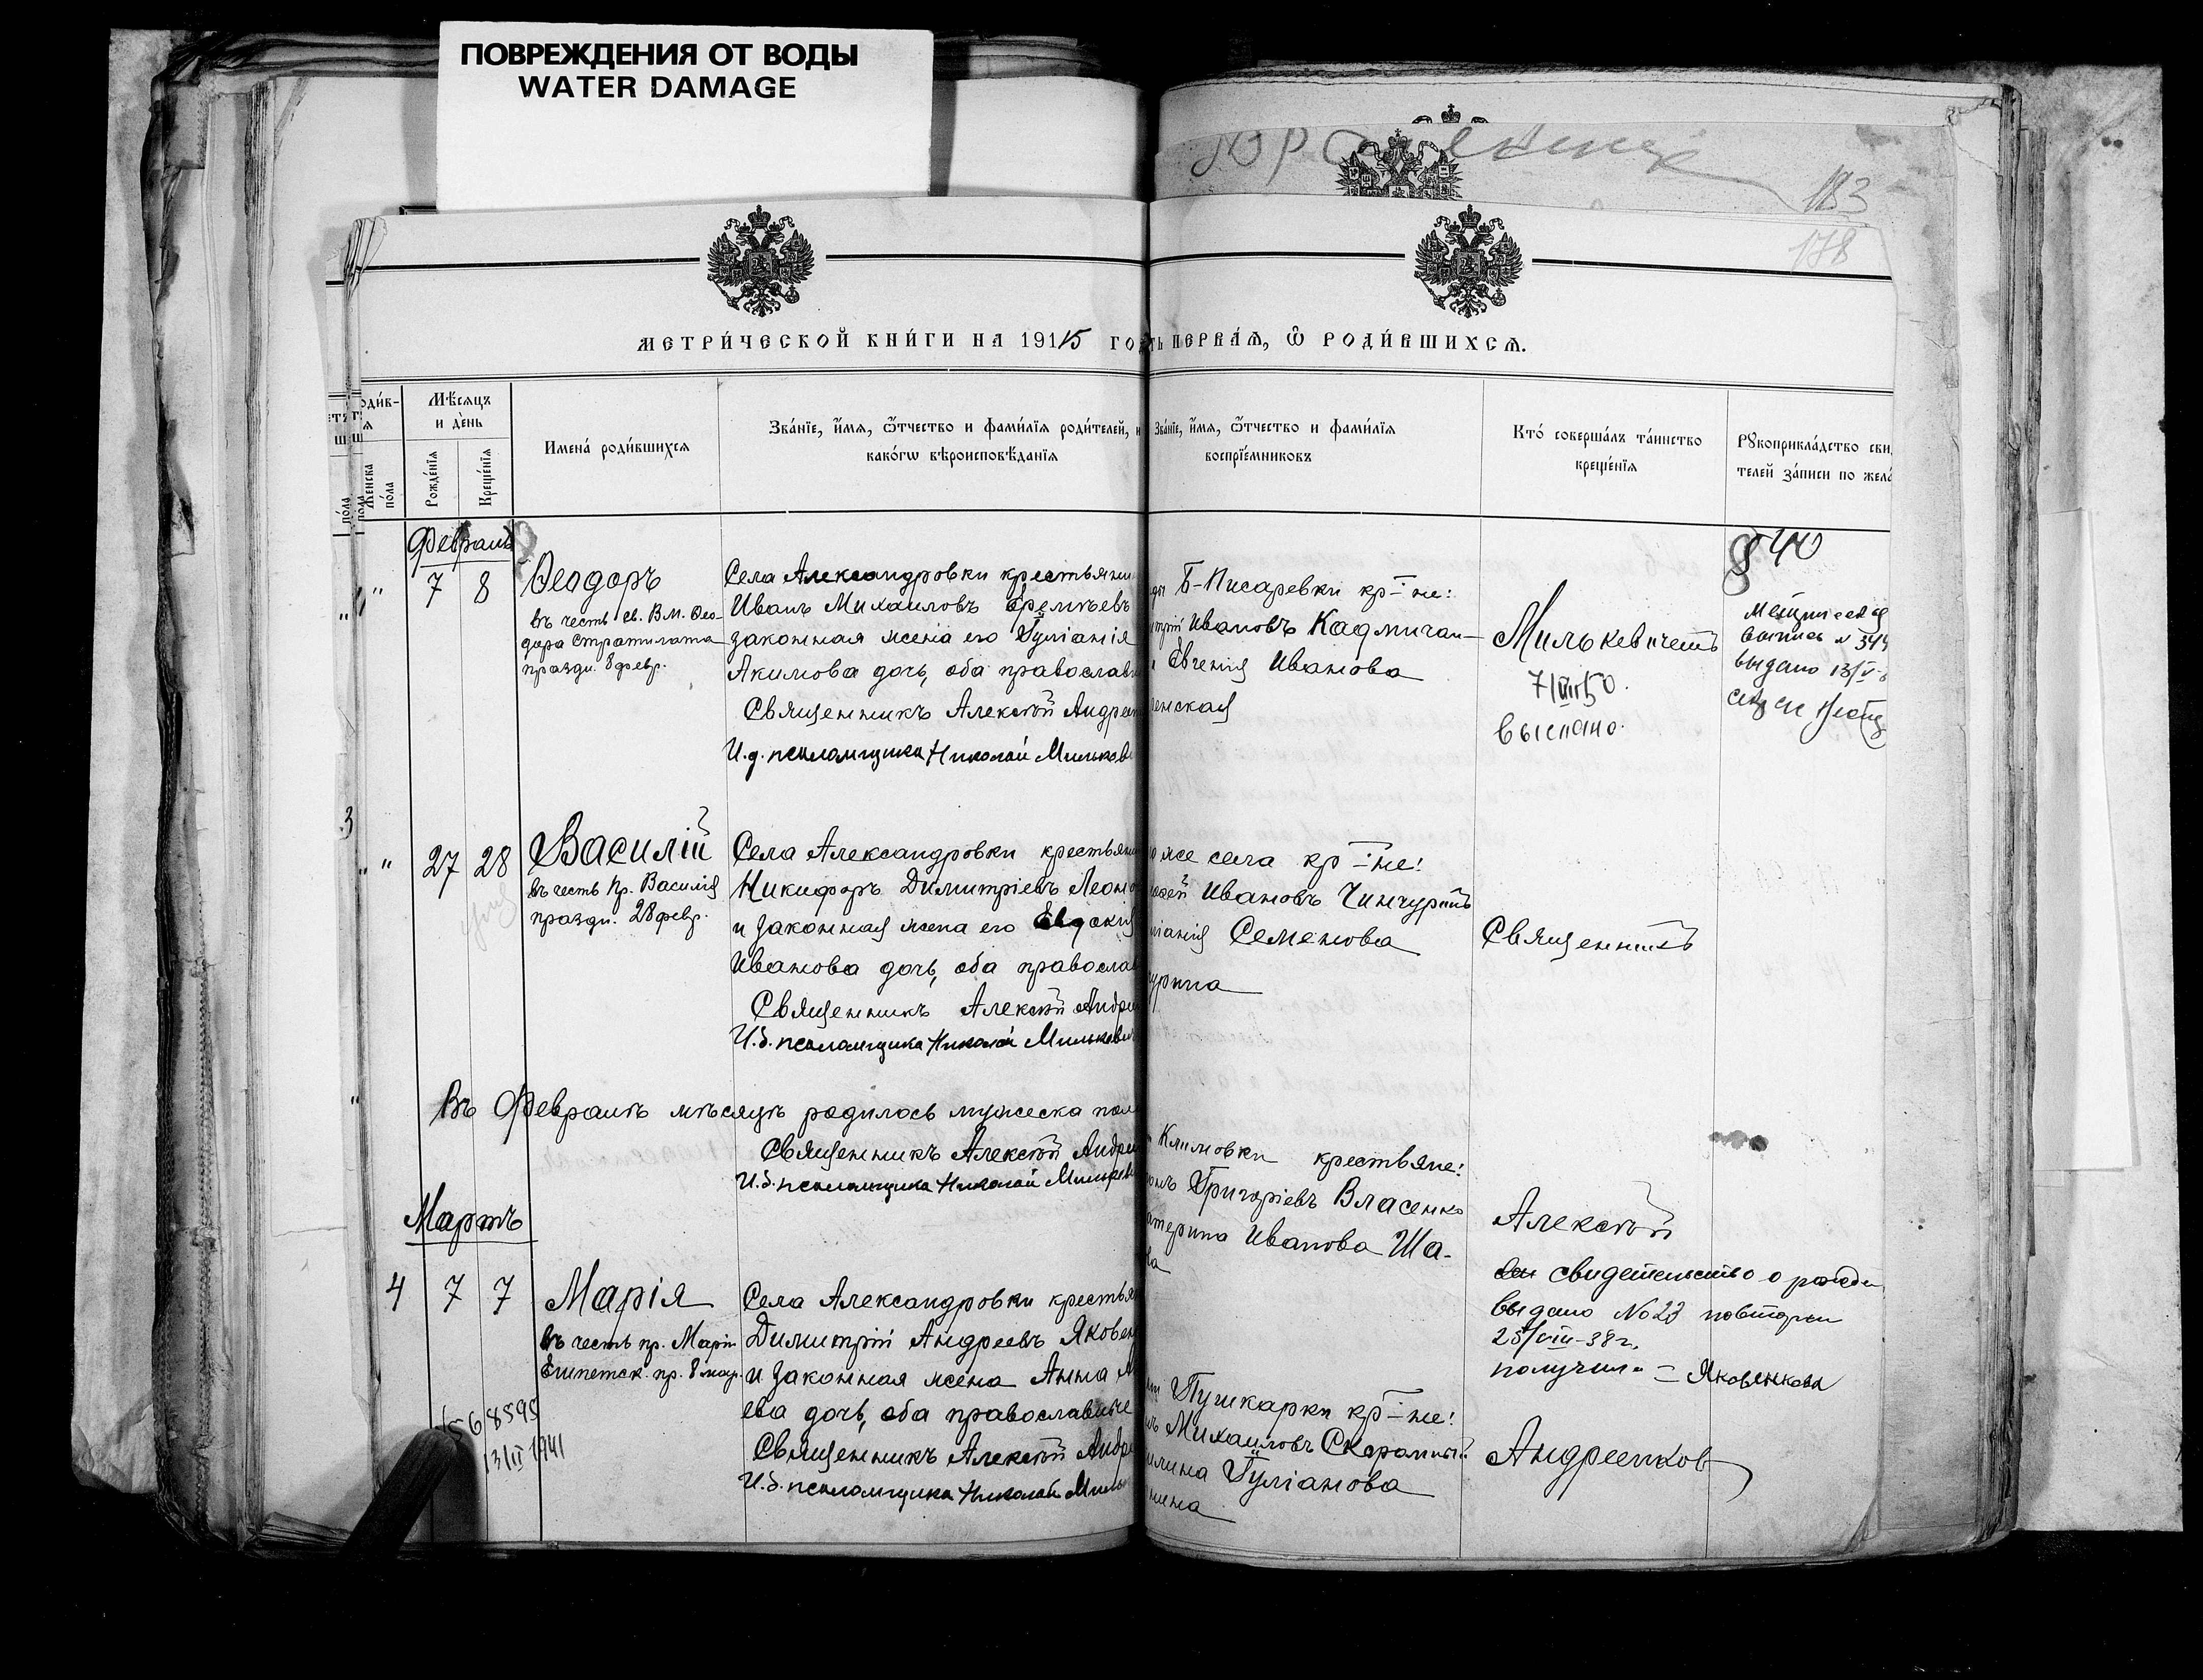 ПОВРЕЖДЕНИЯ ОТ ВОДЫ
WATER DAMAGE
183
178
МЕТРИ́ЧЕСКОЙ КНИ́ГИ НА 1915 ГО
ПЕРВАѦ, Ѿ РОДИ́ВШИХСѦ.
Мѣ́сѧцъ и де́нь
Рожде́нїѧ
Креще́нїѧ
Имена̀ роди́вшихсѧ
Зва́нїе, и҆́мѧ, ѻ҆́тчество и фами́лїѧ роди́телей, и
како́гѡ вѣроисповѣ́данїѧ
Зва́нїе, и҆́мѧ, ѻ҆́тчество и фами́лїѧ
воспрїе́мниковъ
Кто̀ соверша́лъ та́инство
креще́нїѧ
Рꙋкоприкла́дство сви
телей за́писи по жела
Женска по́ла
Февраль
7 8
Ѳеодоръ
въ честь св. В.М. Ѳео-
дора Стратилата
праздн. 8 февр.
Села Александровки крестьянин
Иванъ Михаиловъ Еремѣевъ
законная жена его Іуліанія
Акимова дочь, оба православн
Священникъ Алексѣй Андрее
И.д. псаломщика Николай Мильков
Б-Писаревки кр-не:
Ивановъ Кадмичан-
Евгенія Иванова
енская
Милькевичемъ
7/VIII 50.
выслано.
840
выдано 13/V
3
27 28
Василій
въ честь пр. Василія
праздн. 28 февр.
Села Александровки крестьянин
Никифоръ Димитріевъ Леон
и законная жена его Евдокія
Иванова дочь, оба православ
Священникъ Алексѣй Андре
И.д. псаломщика Николай Милькевич
же села кр-не:
Ивановъ Чинчуринъ
ліанія Семенова
урина
Священникъ
Въ Февралѣ мѣсяцѣ родилось мужеска пол
Священникъ Алексѣй Андре
И.д. псаломщика Николай Милькев
Климовки крестьяне:
Григоріевъ Власенко
атерина Иванова Ша-
ва
Алексѣй
Мартъ
4 7 7
Марія
въ честь пр. Маріи
Египетск. пр. 8 мар.
Села Александровки крестья
Димитрій Андреевъ Яковен
и законная жена Анна А
ева дочь, оба православные
Священникъ Алексѣй Андре
И.д. псаломщика Николай Миль
Пушкарки кр-не:
Михаиловъ Скоранный
Іуліанова
нина
свидетельство о рожден
выдано No 23 повторн
25/VIII-38 г.
получила = Яковенкова
Андреенков
568595
13/II 1941